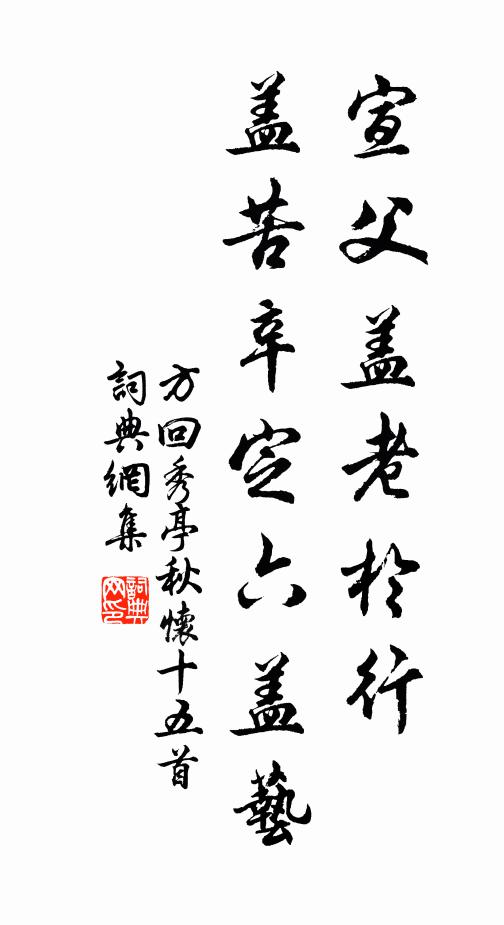 宣父盖老於行
盖苦辛定六盖藝
方回秀亭秋懷十五首
詞典網集
詞典網印